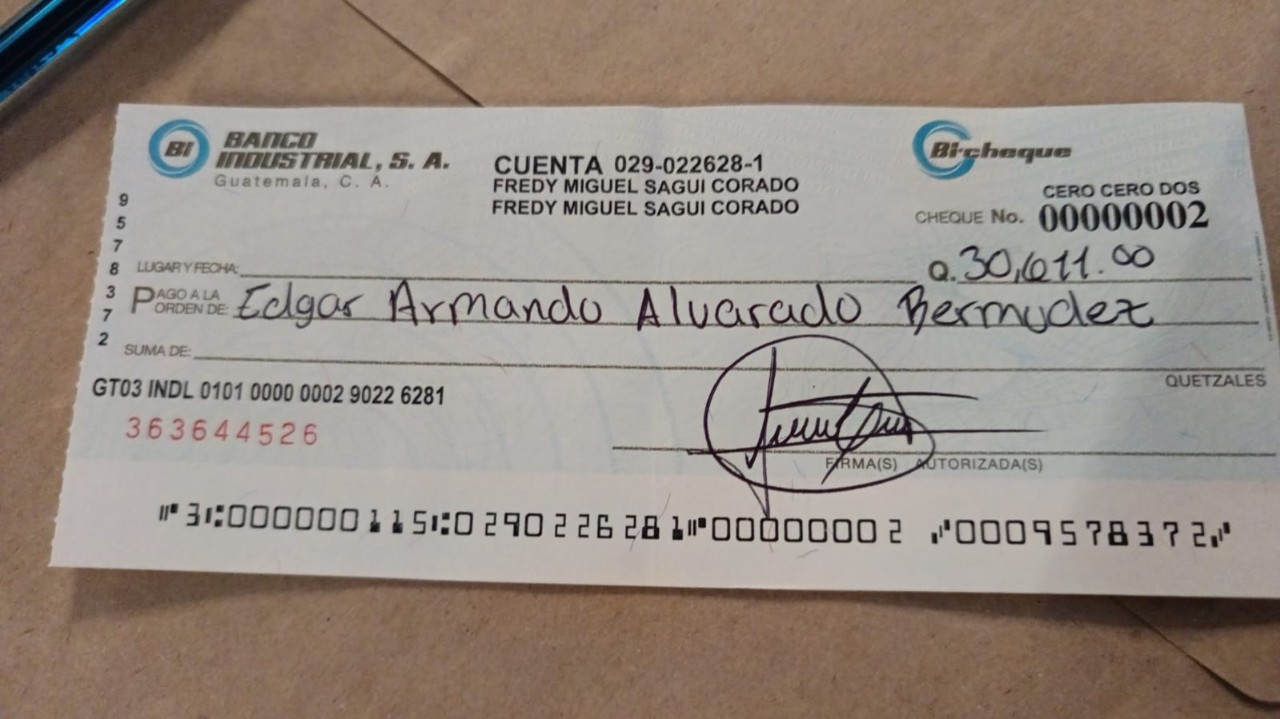 BI BANCO
INDUSTRIAL, S. A.
Guatemala, C. A.
CUENTA 029-022628-1
FREDY MIGUEL SAGUI CORADO
FREDY MIGUEL SAGUI CORADO
Bi-cheque
CERO CERO DOS
CHEQUE No. 00000002
9578372
LUGAR Y FECHA:
Q. 30,611.00
PAGO A LA ORDEN DE: Edgar Armando Alvarado Bermudez
SUMA DE:
QUETZALES
GT03 INDL 0101 0000 0002 9022 6281
363644526
FIRMA(S) AUTORIZADA(S)
⑈31⑆000000115⑆0290226281⑈00000002 ⑇0009578372⑇